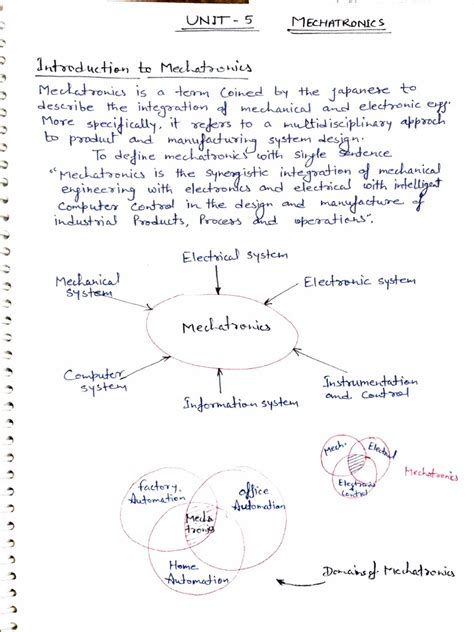 UNIT - 5 MECHATRONICS
Introduction to Mechatronics
Mechatronics is a term coined by the japanese to
describe the integration of mechanical and electronic engg.
More specifically, it refers to a multidisciplinary approch
to product and manufacturing system design.
To define mechatronics with single sentence
"Mechatronics is the synergistic integration of mechanical
engineering with electronics and electrical with intelligent
Computer control in the design and manufacture of
industrial Products, Process and operations".
Electrical system
Mechanical
system
Electronic system
Mechatronics
Computer
system
Information system
Instrumentation
and control
Mech.
Electrical
Electronics
control
Mechatronics
factory
Automation
office
Automation
Mecha
tronics
Home
Automation
Domains of Mechatronics